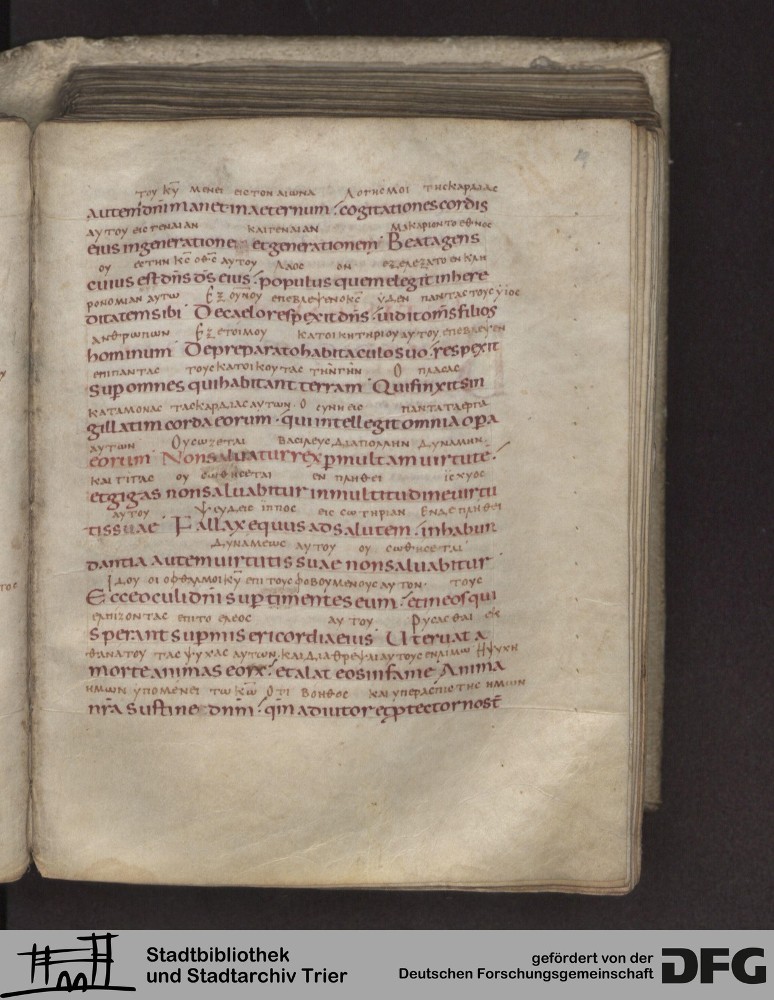 19
ΤΟΥ ΚΥ ΜΕΝΕΙ ΕΙΣ ΤΟΝ ΑΙΩΝΑ ΛΟΓΗΣΜΟΙ ΤΗΣ ΚΑΡΔΙΑΣ
autem dn̄i manet in aeternum : cogitationes cordis
ΑΥΤΟΥ ΕΙΣ ΓΕΝΑΙΑΝ ΚΑΙ ΓΕΝΑΙΑΝ ΜΑΚΑΡΙΟΝ ΤΟ ΕΘΝΟΣ
eius in generatione et generationem Beata gens
ΟΥ ΕΣΤΗΝ ΚΣ Ο ΘΣ ΑΥΤΟΥ ΛΑΟΣ ΟΝ ΕΞΕΛΕΞΑΤΟ ΕΝ ΚΛΗ
cuius est dn̄s d̄s eius : populus quem elegit in here
ΡΟΝΟΜΙΑΝ ΑΥΤΩ ΕΞ ΟΥΝΟΥ ΕΠΕΒΛΕΨΕΝ Ο ΚΣ ΥΔΕΝ ΠΑΝΤΑΣ ΤΟΥΣ ΥΙΟΣ
ditatem sibi De caelo respexit dn̄s : uidit om̄s filios
ΑΝΘΡΩΠΩΝ ΕΞ ΕΤΟΙΜΟΥ ΚΑΤΟΙΚΗΤΗΡΙΟΥ ΑΥΤΟΥ ΕΠΕΒΛΕΨΕΝ
hominum De preparato habitaculo suo : respexit
ΕΠΙ ΠΑΝΤΑΣ ΤΟΥΣ ΚΑΤΟΙΚΟΥΤΑΣ ΤΗΝ ΓΗΝ Ο ΠΛΑΣΑΣ
sup omnes qui habitant terram Qui finxit sin
ΚΑΤΑΜΟΝΑΣ ΤΑΣ ΚΑΡΔΙΑΣ ΑΥΤΩΝ Ο ΣΥΝΗΕΙΣ ΠΑΝΤΑ ΤΑ ΕΡΓΑ
gillatim corda eorum · qui intellegit omnia opa
ΑΥΤΩΝ ΟΥ ΣΩΖΕΤΑΙ ΒΑΣΙΛΕΥΣ ΔΙΑ ΠΟΛΛΗΝ ΔΥΝΑΜΗΝ
eorum Non saluatur rex p multam uirtute :
ΚΑΙ ΓΙΓΑΣ ΟΥ ΣΩΘΗΣΕΤΑΙ ΕΝ ΠΛΗΘΕΙ ΙΣΧΥΟΣ
et gigas non saluabitur in multitudine uirtu
ΑΥΤΟΥ ΨΕΥΔΕΙΣ ΙΠΠΟΣ ΕΙΣ ΣΩΤΗΡΙΑΝ ΕΝ ΔΕ ΠΛΗΘΕΙ
tis suae Fallax equus ad salutem : in habun
ΔΥΝΑΜΕΩΣ ΑΥΤΟΥ ΟΥ ΣΩΘΗΣΕΤΑΙ
dantia autem uirtutis suae non saluabitur
ΙΔΟΥ ΟΙ ΟΦΘΑΛΜΟΙ ΚΥ ΕΠΙ ΤΟΥΣ ΦΟΒΟΥΜΕΝΟΥΣ ΑΥΤΟΝ · ΤΟΥΣ
Ecce oculi dn̄i sup timentes eum : et in eos qui
ΕΛΠΙΖΟΝΤΑΣ ΕΠΙ ΤΟ ΕΛΕΟΣ ΑΥΤΟΥ ΡΥΣΑΣΘΑΙ ΕΚ
sperant sup misericordia eius Ut eruat a
ΘΑΝΑΤΟΥ ΤΑΣ ΨΥΧΑΣ ΑΥΤΩΝ · ΚΑΙ ΔΙΑΘΡΕΨΑΙ ΑΥΤΟΥΣ ΕΝ ΛΙΜΩ Η ΨΥΧΗ
morte animas eorx : et alat eos in fame Anima
ΗΜΩΝ ΥΠΟΜΕΝΕΙ ΤΩ ΚΩ ΟΤΙ ΒΟΗΘΟΣ ΚΑΙ ΥΠΕΡΑΣΠΙΣΤΗΣ ΗΜΩΝ
n̄ra sustine dn̄m : qm̄ adiutor et ptector nost̄
Stadtbibliothek
und Stadtarchiv Trier
gefördert von der
Deutschen Forschungsgemeinschaft
DFG